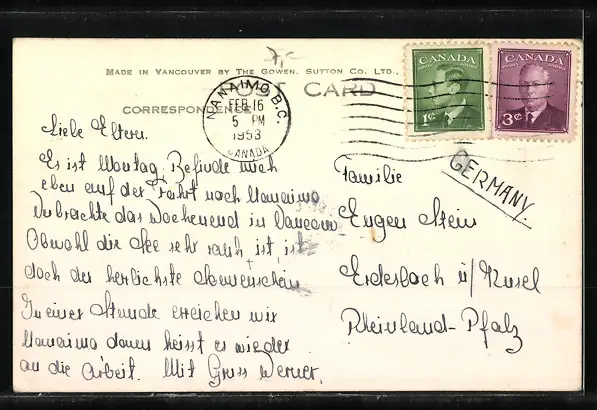 MADE IN VANCOUVER BY THE GOWEN, SUTTON CO. LTD.,
POST CARD
CORRESPONDENCE
NANAIMO, B.C.
FEB 16
5 PM
1953
CANADA
CANADA
1¢
CANADA
3¢
GERMANY.
Liebe Eltern.
Es ist Montag. Befinde mich
eben auf der Fahrt nach Nanaimo
Verbrachte das Wochenend in Vancouv
Obwohl die See sehr rauh ist, ist
doch der herlichste Sonnenschein
In einer Stunde erreichen wir
Nanaimo dann heisst es wieder
an die Arbeit. Mit Gruss Werner.
Familie
Eugen Stein
Erdesbach ü/Kusel
Rheinland-Pfalz